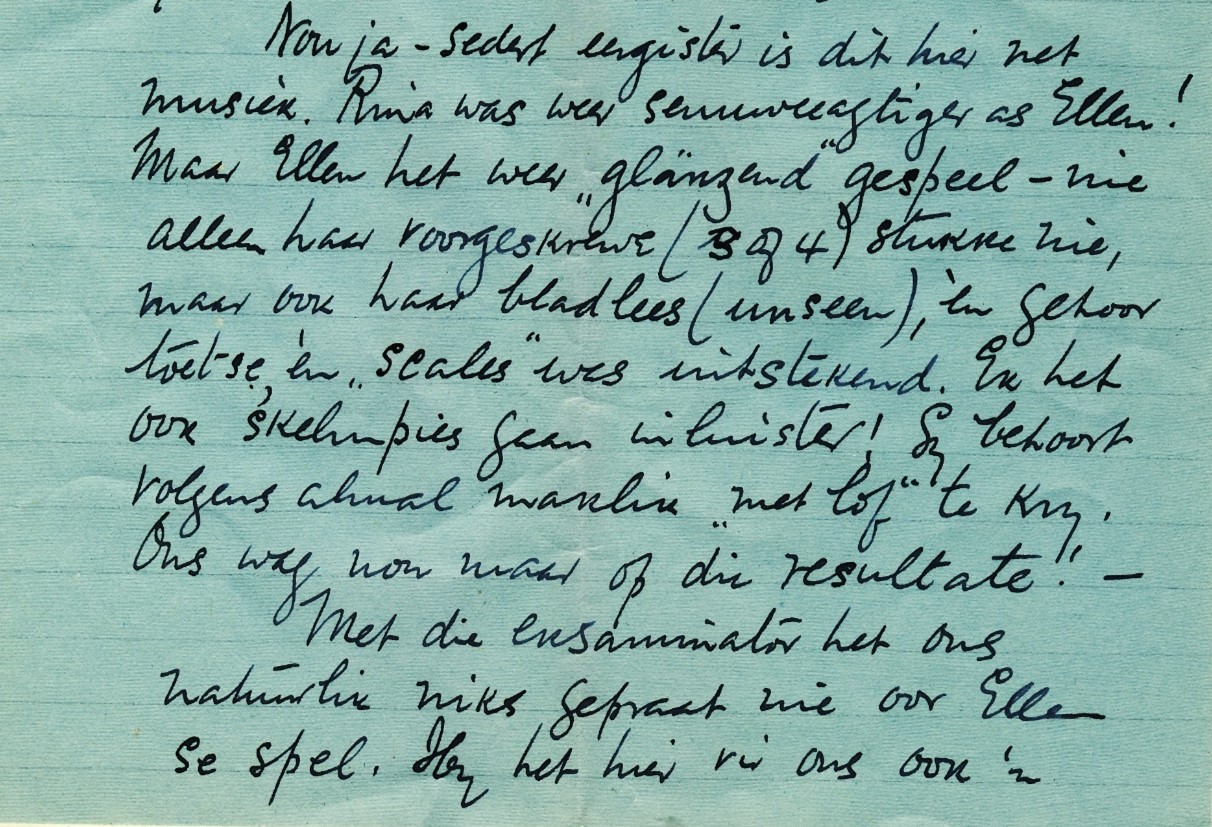 Nou ja - sedert eergister is dit hier net
musiek. Rina was weer senuweeagtiger as Ellen!
Maar Ellen het weer „glänzend” gespeel - nie
alleen haar voorgeskrewe (3 of 4) stukke nie,
maar ook haar bladlees (unseen), èn gehoor
toetse, èn „scales” was uitstekend. Ek het
ook skelmpies gaan inluister! Sy behoort
volgens almal maklik „met lof” te kry.
Ons wag nou maar op die resultate! -
Met die eksaminator het ons
natuurlik niks gepraat nie oor Ellen
se spel. Hy het hier vir ons ook 'n